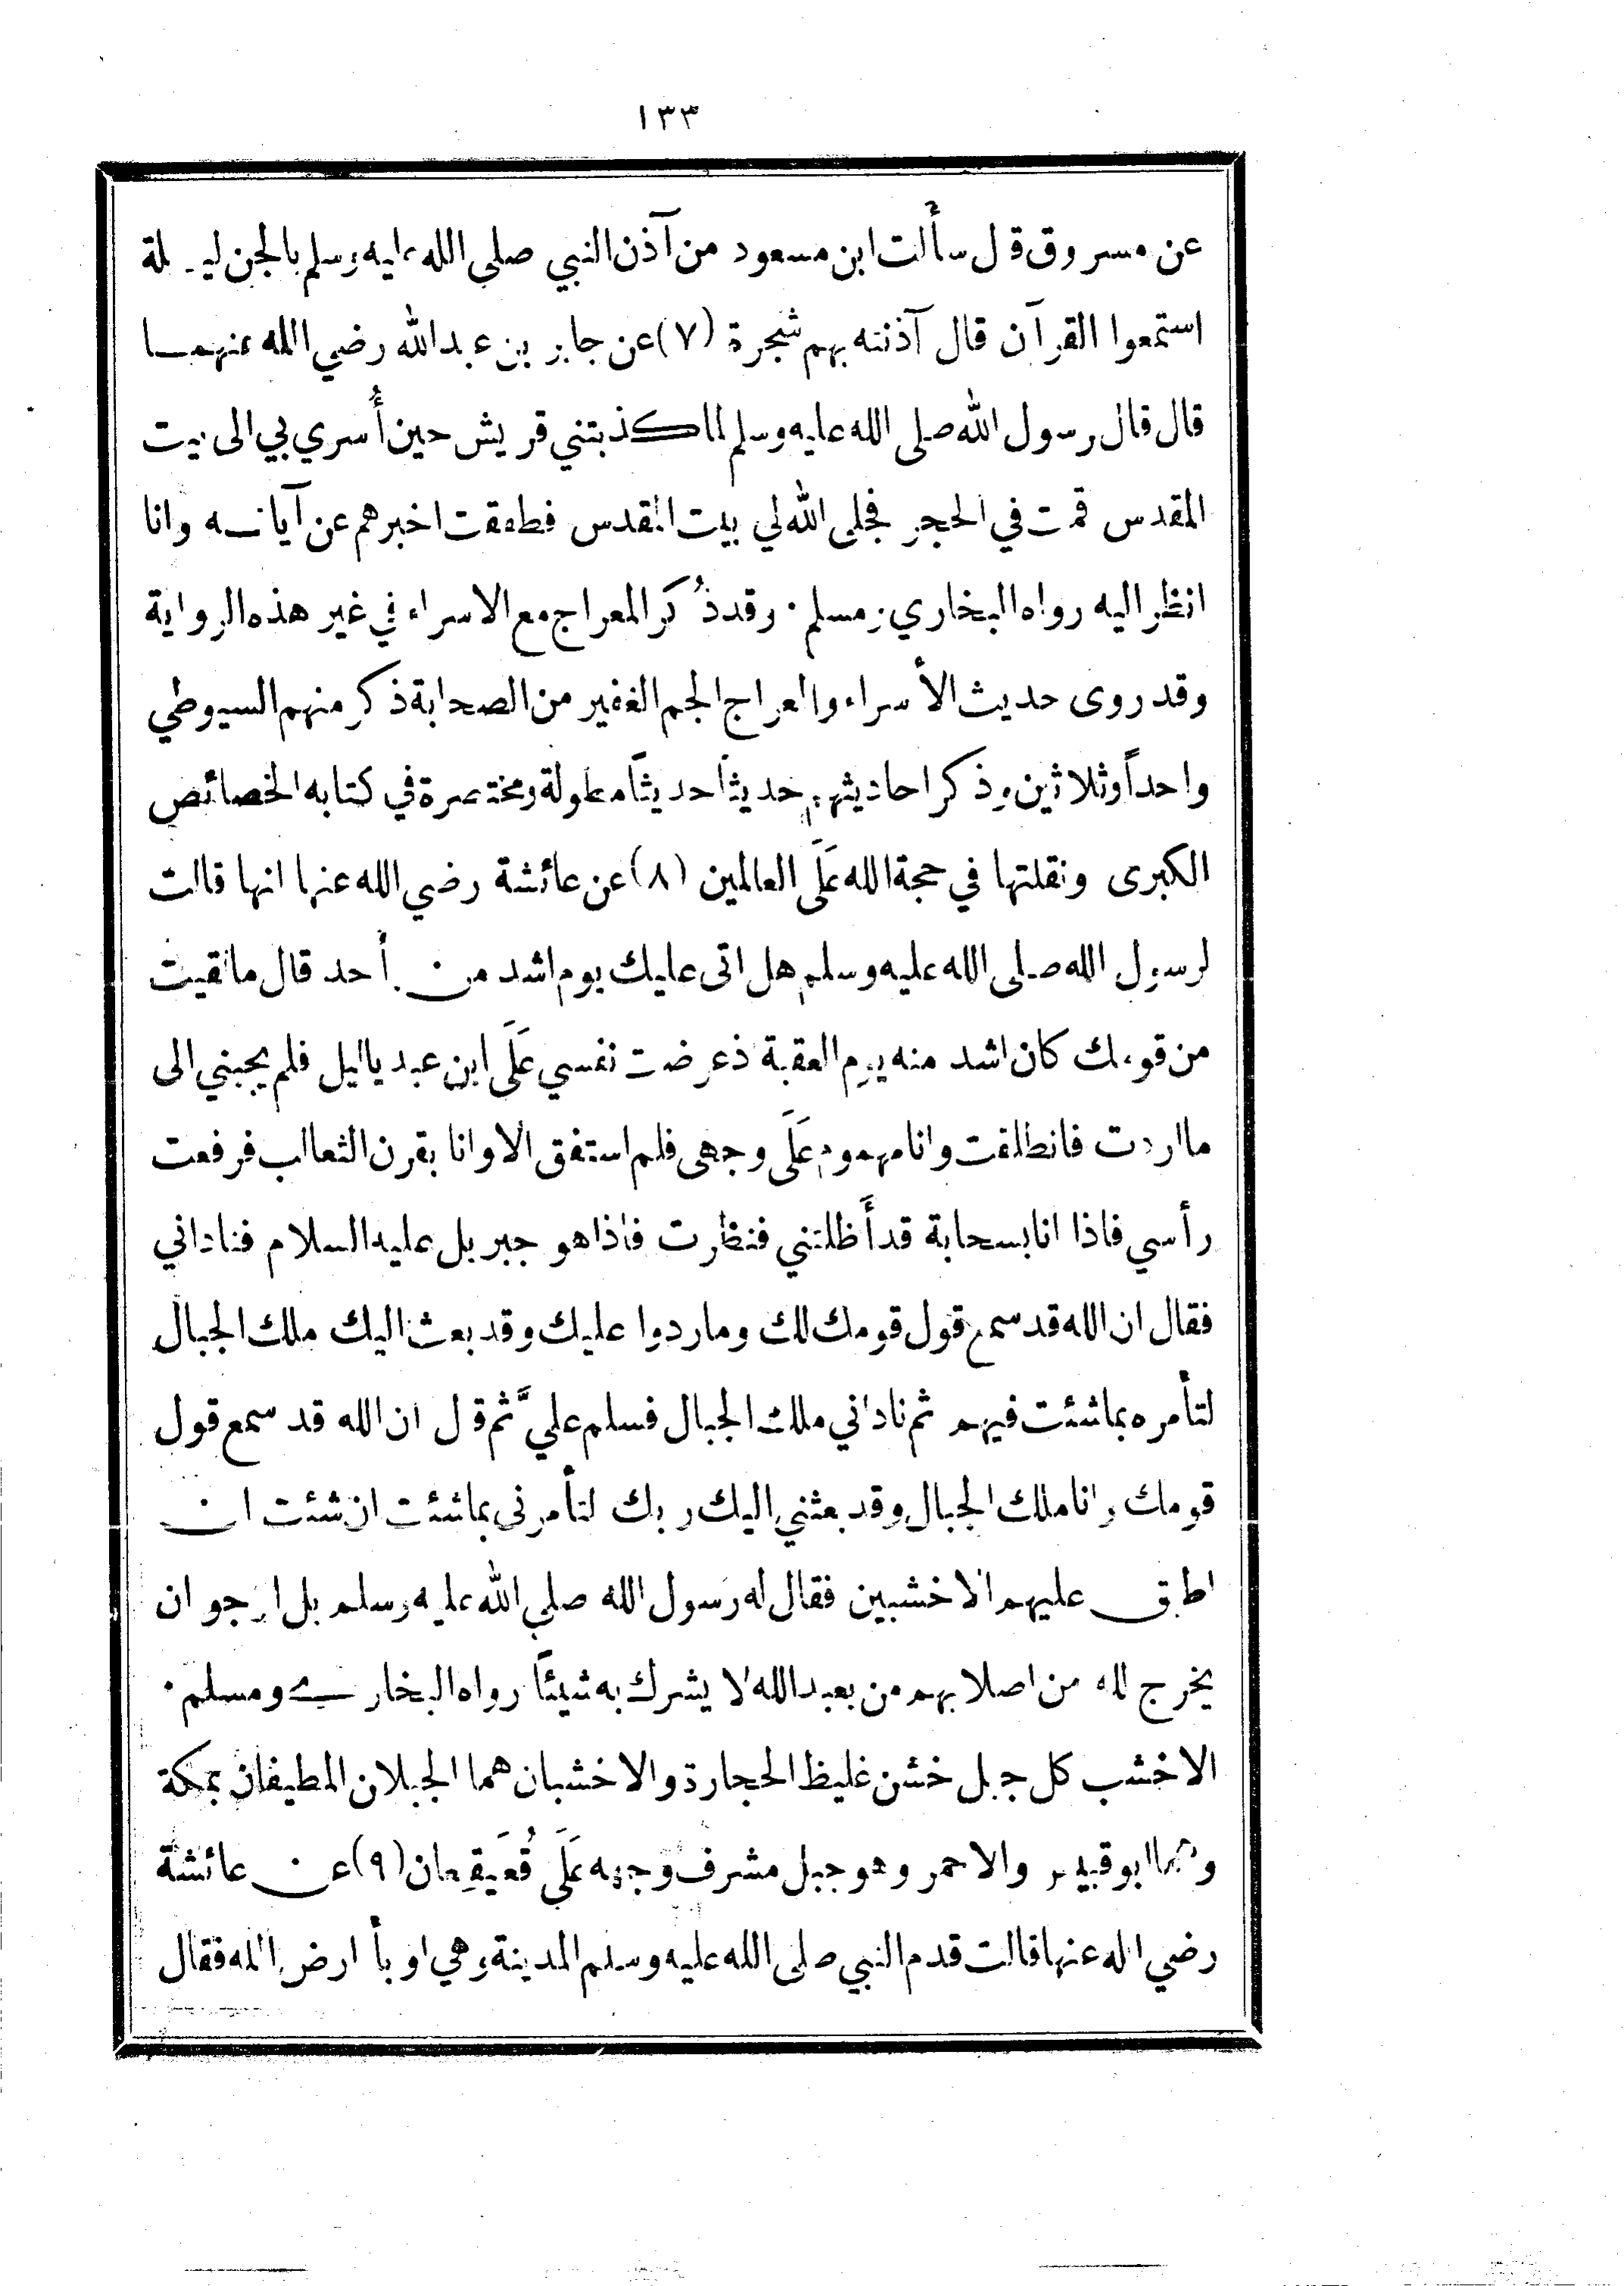 ١٣٣
عن مسروق قال سألت ابن مسعود من آذن النبي صلى الله عليه وسلم بالجن ليلة
استمعوا القرآن قال آذنته بهم شجرة (٧) عن جابر بن عبد الله رضي الله عنهما
قال قال رسول الله صلى الله عليه وسلم لما كذبتني قريش حين أُسري بي الى بيت
المقدس قمت في الحجر فجلى الله لي بيت المقدس فطفقت اخبرهم عن آياته وانا
انظر اليه رواه البخاري ومسلم . وقد ذُكر المعراج مع الاسراء في غير هذه الرواية
وقد روى حديث الأسراء والمعراج الجم الغفير من الصحابة ذكر منهم السيوطي
واحداً وثلاثين وذكر احاديثهم حديثاً حديثاً مطولة ومختصرة في كتابه الخصائص
الكبرى ونقلتها في حجة الله عَلَى العالمين (٨) عن عائشة رضي الله عنها انها قالت
لرسول الله صلى الله عليه وسلم هل اتى عليك يوم اشد من أحد قال مالقيت
من قومك كان اشد منه يوم العقبة اذ عرضت نفسي عَلَى ابن عبد ياليل فلم يجبني الى
ما اردت فانطلقت وانا مهموم عَلَى وجهى فلم استفق الا وانا بقرن الثعالب فرفعت
رأسي فاذا انا بسحابة قد أَظلتني فنظرت فاذا هو جبريل عليه السلام فناداني
فقال ان الله قد سمع قول قومك لك وما ردوا عليك وقد بعث اليك ملك الجبال
لتأمره بما شئت فيهم ثم ناداني ملك الجبال فسلم عليَّ ثم قال ان الله قد سمع قول
قومك وانا ملك الجبال وقد بعثني اليك ربك لتأمرنى بما شئت ان شئت ان
اطبق عليهم الاخشبين فقال له رسول الله صلى الله عليه وسلم بل ارجو ان
يخرج الله من اصلابهم من يعبد الله لا يشرك به شيئاً رواه البخاري ومسلم .
الاخشب كل جبل خشن غليظ الحجارة والاخشبان هما الجبلان المطيفان بمكة
وهما ابو قبيس والاحمر وهو جبل مشرف وجهه عَلَى قُعَيقِعان (٩) عن عائشة
رضي الله عنها قالت قدم النبي صلى الله عليه وسلم المدينة وهي اوبأ ارض الله فقال